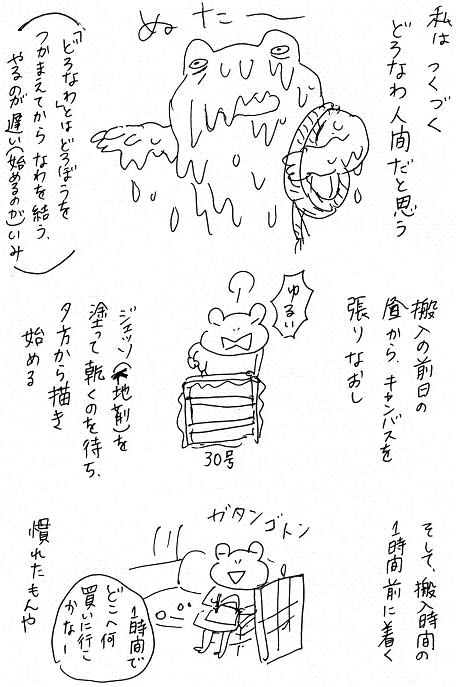 私は つくづく
どろなわ人間だと思う
ぬたー
(「どろなわ」とはどろぼうを
つかまえてから なわを結う、
やるのが遅い(始めるのが)いみ)
搬入の前日の
昼から、キャンバスを
張りなおし
ゆるい
30号
ジェッソ(地剤)を
塗って乾くのを待ち、
夕方から描き
始める
そして、搬入時間の
1時間前に着く
ガタンゴトン
1時間で
どこへ何
買いに行こ
かなー
慣れたもんや